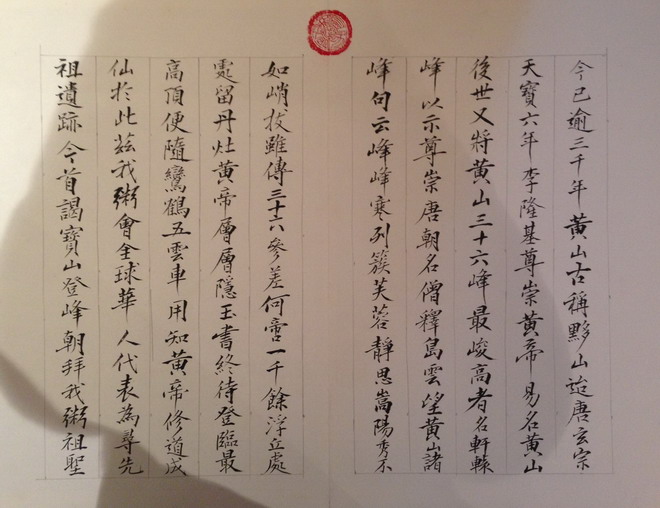 今已逾三千年黄山古稱黟山迨唐玄宗
天寶六年李隆基尊崇黄帝易名黄山
後世又將黄山三十六峰最峻高者名軒轅
峰以示尊崇唐朝名僧釋島雲望黄山諸
峰句云峰峰寒列簇芙蓉靜思嵩陽秀不
如峭拔雖傳三十六參差何啻一千餘浮丘處
處留丹灶黄帝層層隱玉書終待登臨最
高頂便隨鸞鶴五雲車用知黄帝修道成
仙於此茲我粥會全球華人代表為尋先
祖遺跡今首謁寶山登峰朝拜我粥祖聖